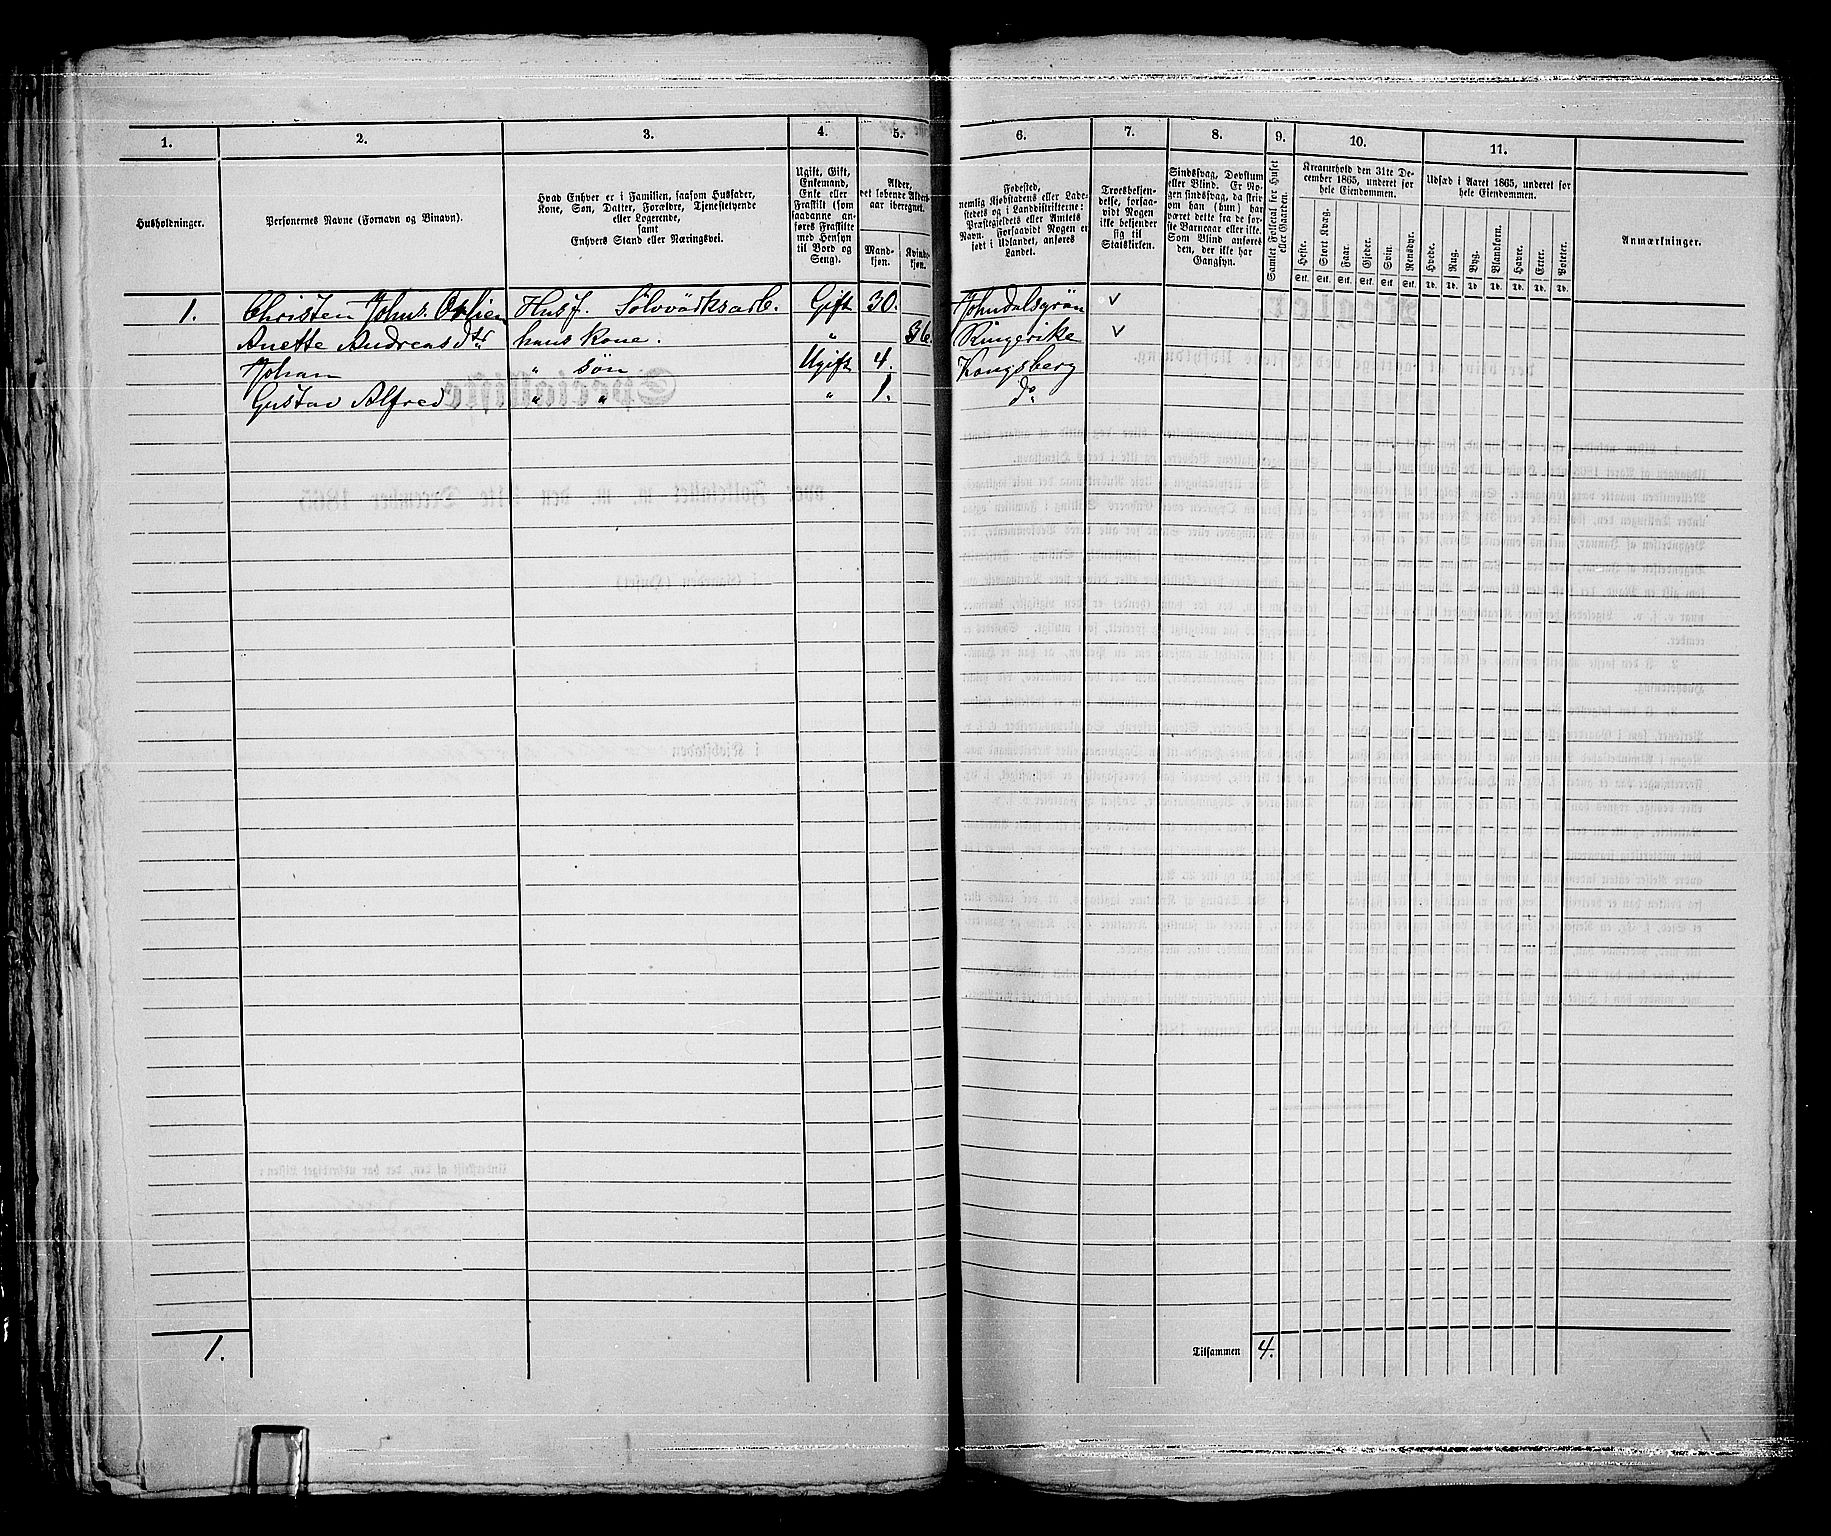 1. 2. 3. 4. 5. 6. 7. 8. 9. 10. 11.
Husholdninger.
Personernes Navne (Fornavn og Binavn).
Hvad Enhver er i Familien, saasom Husfader,
Kone, Søn, Datter, Forældre, Tjenestetyende
eller Logerende,
samt
Enhvers Stand eller Næringsvei.
Ugift, Gift,
Enkemand,
Enke eller
Fraskilt (som
saadanne an-
føres Fraskilte
med Hensyn
til Bord og
Seng).
Alder,
det løbende Alders-
aar iberegnet.
Mand-
kjøn.
Kvinde-
kjøn.
Fødested,
nemlig Kjøbstadens eller Lade-
stedets og i Landdistrikterne:
Præstegjeldets eller Amtets
Navn. Forsaavidt Nogen er
født i Udlandet, anføres
Landet.
Troesbekjen-
delse, forsaa-
vidt Nogen
ikke bekjender
sig til
Statskirken.
Sindssvag, Døvstum
eller Blind. Er No-
gen sindssvag, da skriv
om han (hun) har
været dette fra de før-
ste Barneaar eller ikke.
Som Blind anføres
den, der ikke har
Gangsyn.
Samlet Folketal for Huset
eller Gaarden.
Kreaturhold den 31te De-
cember 1865, underet for
hele Eiendommen.
Heste. Stort Kvæg. Faar. Gjeder. Svin. Rensdyr.
Stk. Stk. Stk. Stk. Stk. Stk.
Udsæd i Aaret 1865, underet for
hele Eiendommen.
Hvede. Rug. Byg. Blandkorn. Havre. Erter. Poteter.
Td. Td. Td. Td. Td. Td. Td.
Anmærkninger.
1. Christen Johns. Husf. Sølvværksarb. Gift 30. Johndalsgrøn v
Anette Andreasdtr hans Kone. " 36. Ringerike v
Johan " søn Ugift 4. Kongsberg
Gustav Alfred " " " 1. do
1. Tilsammen 4.